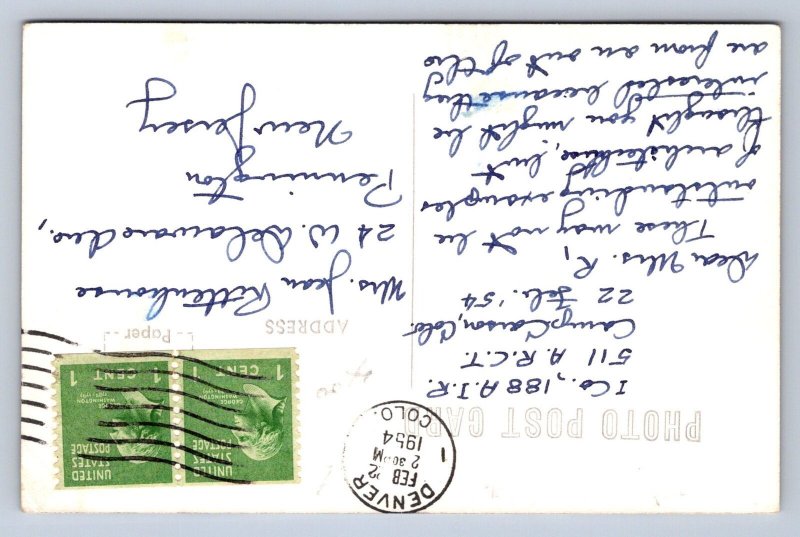 PHOTO POST CARD
I Co., 188 A.I.R.
511 A.R.C.T.
Camp Carson, Colo
22 Feb. '54
Dear Mrs. R,
These may not be
outstanding examples
of architecture, but
thought you might be
interested because they
are from an out of the
DENVER
COLO.
FEB 22
2 30 PM
1954
UNITED
STATES
POSTAGE
GEORGE
WASHINGTON
1789-1797
1 CENT 1
UNITED
STATES
POSTAGE
GEORGE
WASHINGTON
1789-1797
1 CENT 1
Paper
ADDRESS
Mrs. Jean Rittenhouse
24 W. Delaware Ave.,
Pennington
New Jersey